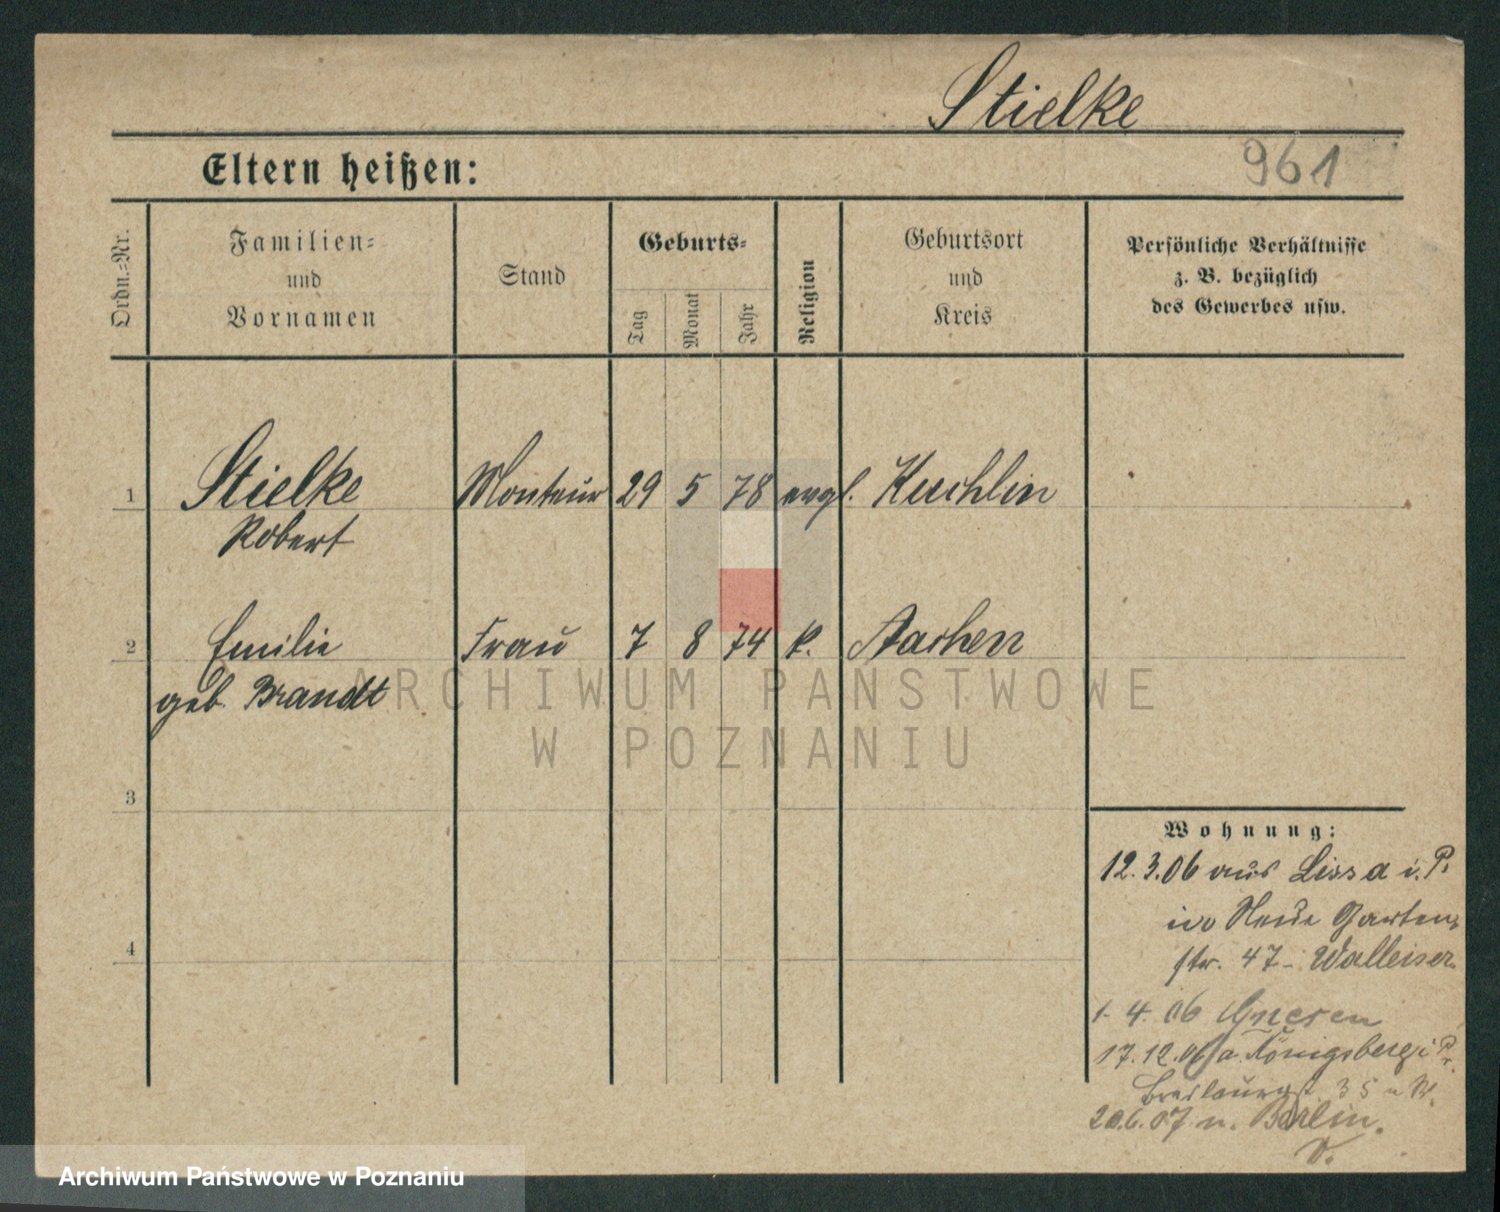 Stielke
961
Eltern heißen:
Ordn.=Nr.
Familien=
und
Vornamen
Stand
Geburts=
Tag
Monat
Jahr
Religion
Geburtsort
und
Kreis
Persönliche Verhältnisse
z. B. bezüglich
des Gewerbes usw.
1 Stielke Monteur 29 5 78 evgl. Kuchlin
Robert
2 Emilie Frau 7 8 74 k. Aachen
geb. Brandt
3
4
Wohnung:
12.3.06 aus Lissa i. P.
Neue Garten
str. 47 - Walleiser
1. 4. 06 Gnesen
17.12.06 a Königsberg i Pr.
35
20.6.07 n. Berlin.
ARCHIWUM PAŃSTWOWE
W POZNANIU
Archiwum Państwowe w Poznaniu